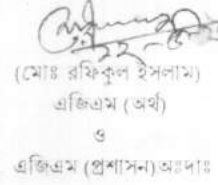 ২২-৫
(মোঃ রফিকুল ইসলাম)
এজিএম (অর্থ)
ও
এজিএম (প্রশাসন)অঃদাঃ